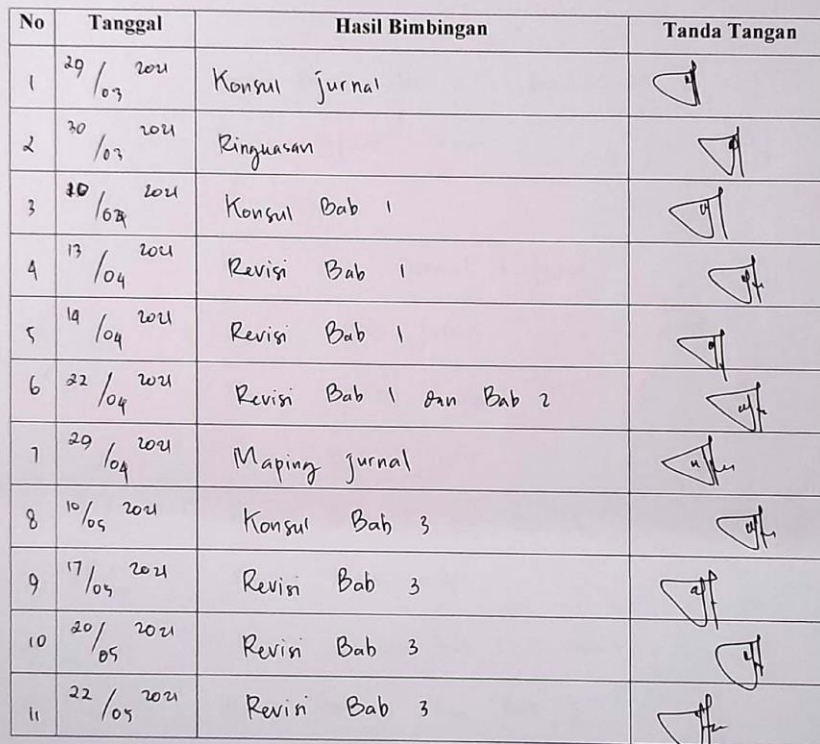 No Tanggal Hasil Bimbingan Tanda Tangan
1 29/03 2021 Konsul jurnal
2 30/03 2021 Ringuasan
3 2021 Konsul Bab 1
4 13/04 2021 Revisi Bab 1
5 14/04 2021 Revisi Bab 1
6 22/04 2021 Revisi Bab 1 dan Bab 2
7 29/04 2021 Maping jurnal
8 10/05 2021 Konsul Bab 3
9 17/05 2021 Revisi Bab 3
10 20/05 2021 Revisi Bab 3
11 22/05 2021 Revisi Bab 3